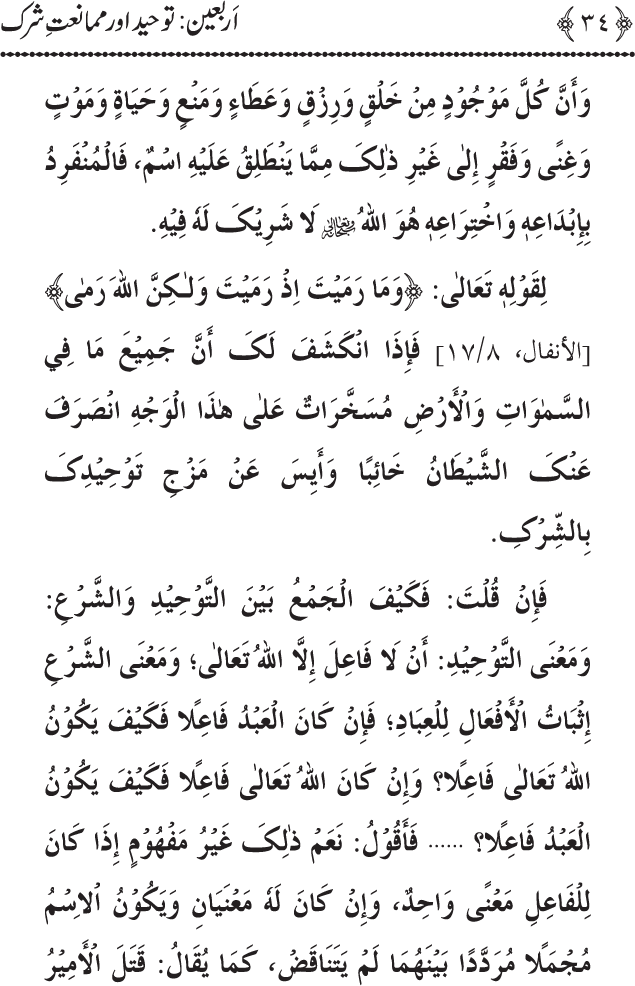 ﴿٣٤﴾ اَربعین: توحید اور ممانعتِ شرک
وَأَنَّ كُلَّ مَوْجُوْدٍ مِنْ خَلْقٍ وَرِزْقٍ وَعَطَاءٍ وَمَنْعٍ وَحَيَاةٍ وَمَوْتٍ
وَغِنًى وَفَقْرٍ إِلٰى غَيْرِ ذٰلِکَ مِمَّا يَنْطَلِقُ عَلَيْهِ اسْمٌ، فَالْمُنْفَرِدُ
بِإِبْدَاعِهٖ وَاخْتِرَاعِهٖ هُوَ اللهُ سبحانه وتعالى لَا شَرِيْکَ لَهٗ فِيْهِ.
لِقَوْلِهٖ تَعَالٰى: ﴿وَمَا رَمَيْتَ اِذْ رَمَيْتَ وَلٰـكِنَّ اللهَ رَمٰى﴾
[الأنفال، ١٧/٨] فَإِذَا انْكَشَفَ لَکَ أَنَّ جَمِيْعَ مَا فِي
السَّمٰوَاتِ وَالْأَرْضِ مُسَخَّرَاتٌ عَلٰى هٰذَا الْوَجْهِ انْصَرَفَ
عَنْکَ الشَّيْطَانُ خَائِبًا وَأَيِسَ عَنْ مَزْجِ تَوْحِيْدِکَ
بِالشِّرْکِ.
فَإِنْ قُلْتَ: فَكَيْفَ الْجَمْعُ بَيْنَ التَّوْحِيْدِ وَالشَّرْعِ:
وَمَعْنَى التَّوْحِيْدِ: أَنْ لَا فَاعِلَ إِلَّا اللهُ تَعَالٰى؛ وَمَعْنَى الشَّرْعِ
إِثْبَاتُ الْأَفْعَالِ لِلْعِبَادِ؛ فَإِنْ كَانَ الْعَبْدُ فَاعِلًا فَكَيْفَ يَكُوْنُ
اللهُ تَعَالٰى فَاعِلًا؟ وَإِنْ كَانَ اللهُ تَعَالٰى فَاعِلًا فَكَيْفَ يَكُوْنُ
الْعَبْدُ فَاعِلًا؟ ...... فَأَقُوْلُ: نَعَمْ ذٰلِکَ غَيْرُ مَفْهُوْمٍ إِذَا كَانَ
لِلْفَاعِلِ مَعْنًى وَاحِدٌ، وَإِنْ كَانَ لَهٗ مَعْنَيَانِ وَيَكُوْنُ الْاِسْمُ
مُجْمَلًا مُرَدَّدًا بَيْنَهُمَا لَمْ يَتَنَاقَضْ، كَمَا يُقَالُ: قَتَلَ الْأَمِيْرُ